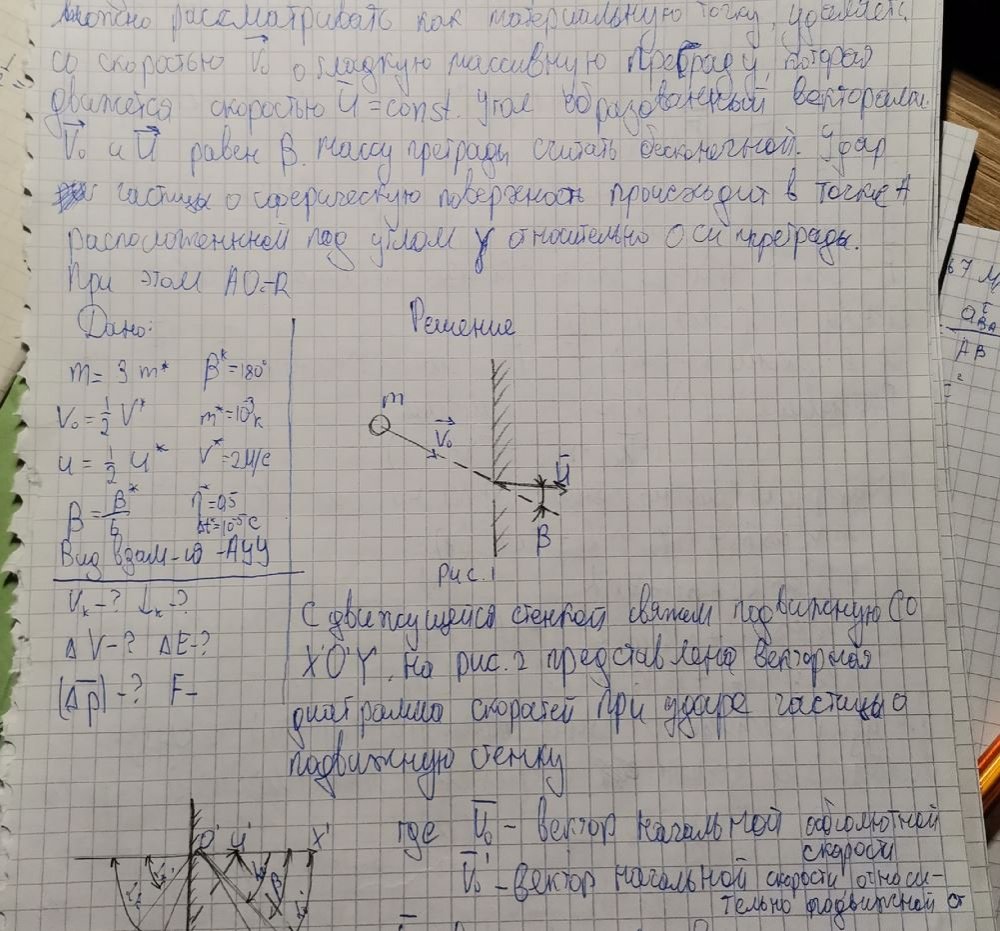 можно рассматривать как материальную точку, ударяется
со скоростью V₀ о гладкую массивную преграду, которая
движется скоростью U = const. Угол образованный векторами
V₀ и U равен β. Массу преграды считать бесконечной. Удар
частицы о сферическую поверхность происходит в точке A
расположенной под углом γ относительно оси преграды.
При этом AO=R
Дано:
m = 3 m* β* = 180°
V₀ = ½ V* m* = 10⁻³ к
u = ½ u* V* = 2 м/с
β = β*/6 η* = 0,5
Δt* = 10⁻⁵ с
Вид взам-ия - АУУ
Vₖ - ? Lₖ - ?
ΔV - ? ΔE - ?
(Δp) - ? F -
Решение
m
V₀
U
β
Рис. 1
С движущейся стенкой свяжем подвижную СО
X'O'Y'. На рис. 2 представлена векторная
диаграмма скоростей при ударе частицы о
подвижную стенку
O' U' X'
β
где U₀ - вектор начальной абсолютной
скорости
U₀' - вектор начальной скорости относи-
тельно подвижной
67
A B